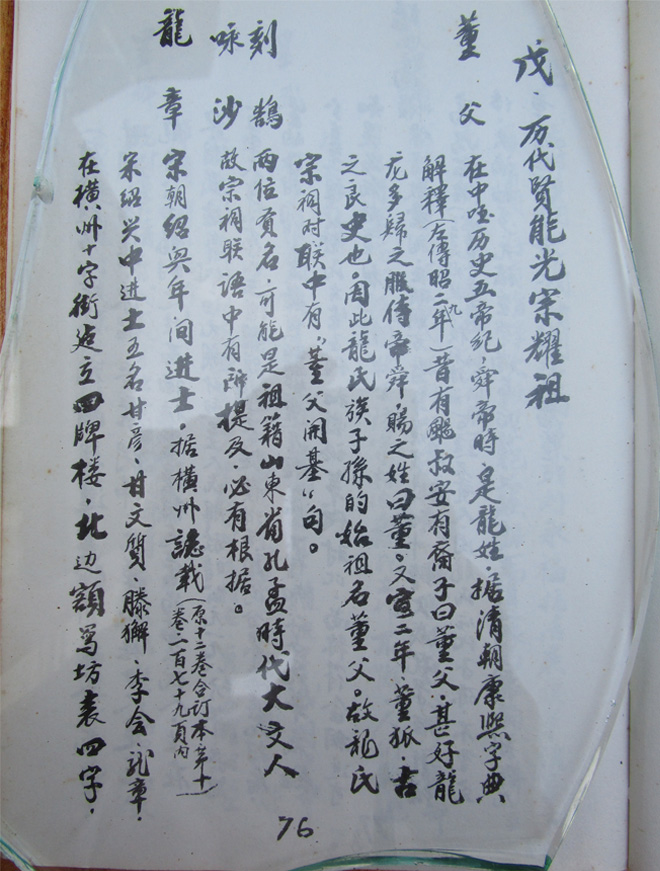 戊、历代賢能光宗耀祖
董父 在中国历史五帝纪、舜帝時、是龍姓、据清朝康熙字典
解釋(左傳昭二九年)昔有飂叔安有裔子曰董父、甚好龍
龙多歸之服侍帝舜、賜之姓曰董。又宣二年、董狐、古
之良史也。因此龍氏族子孫的始祖名董父。故龍氏
宗祠对联中有、"董父開基"句。
刻鵠 两位賢名、可能是祖籍山東省孔孟時代大文人
咏沙 故宗祠联語中有所提及、必有根据。
龍章 宋朝紹興年间进士。据横州誌載(原十二卷合订本第十一卷二百七十九頁內)
宋绍兴中进士五名甘彦、甘文質、滕獬、李会、龙章、
在横州十字街建立四牌楼、北边額寫坊表四字、
76